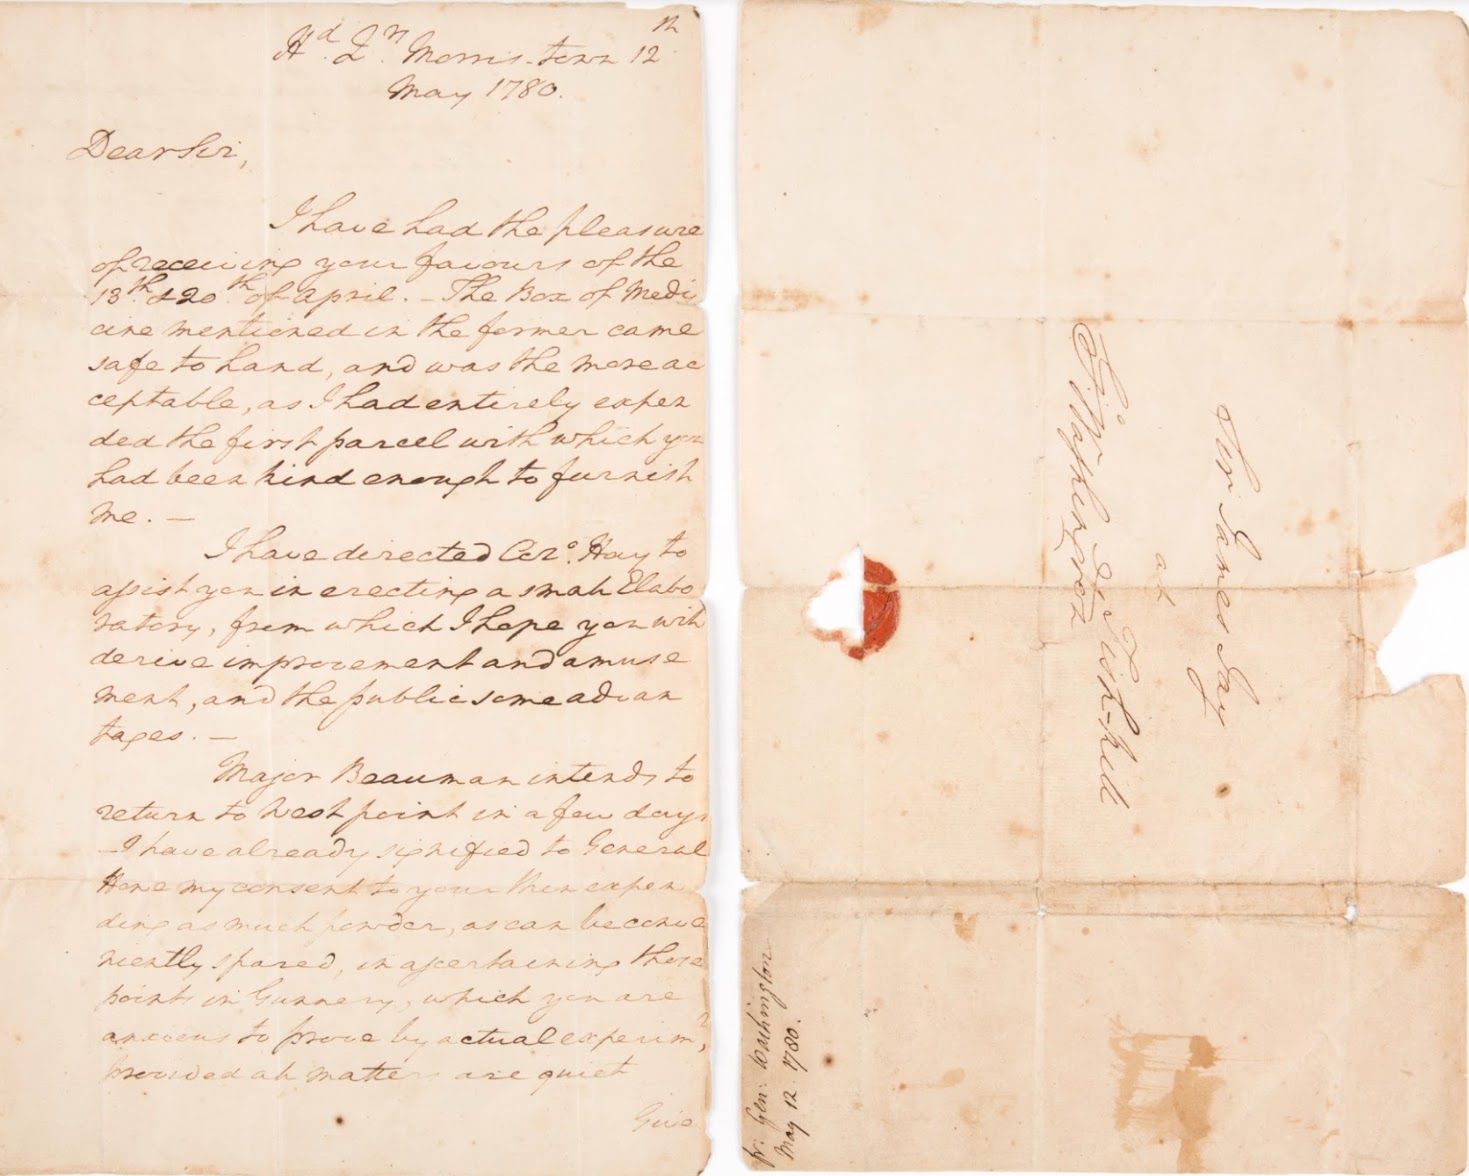 12
Hd. Qrs. Morris-town 12
May 1780.
Dear Sir,
I have had the pleasure
of receiving your favours of the
13th & 20th of April. – The Box of Medi
cine mentioned in the former came
safe to hand, and was the more ac
ceptable, as I had entirely expen
ded the first parcel with which you
had been kind enough to furnish
me. –
I have directed Colo. Hay to
assist you in erecting a small Elabo
ratory, from which I hope you will
derive improvement and amuse
ment, and the public some advan
tages. –
Major Beauman intends to
return to West point in a few days
– I have already signified to General
Howe my consent to your then expen
ding as much powder, as can be conve
niently spared, in ascertaining those
points in Gunnery, which you are
anxious to prove by actual experimt,
provided all matters are quiet
Give
Sir James Jay
at
Fish-kill
Go: Washington
fr. Gen: Washington
May 12. 1780.